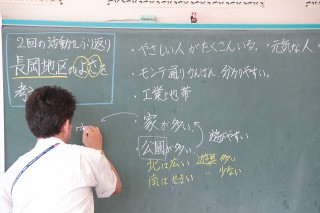 2回の活動をふり返り
長岡地区のよさを
考
・やさしい人がたくさんいる。・元気な人
・モンテ通り かんばん 分かりやすい。
・工業地帯
・家が多い。
・公園が多い 遊びやすい
北は広い 遊具 多い
南はせまい 〃 少ない